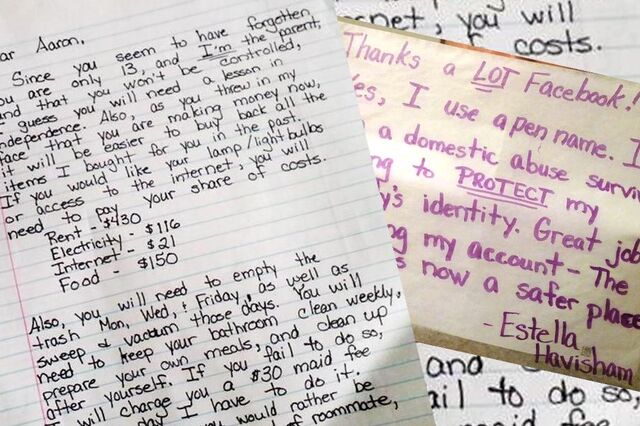 ar Aaron,
Since you seem to have forgotten
ou are only 13, and I'm the parent,
and that you won't be controlled,
guess you will need a lesson in
independence. Also, as you threw in my
face that you are making money now,
it will be easier to buy back all the
items I bought for you in the past.
If you would like your lamp/lightbulbs
or access to the internet, you will
need to pay your share of costs.
Rent - $430
Electricity - $116
Internet - $21
Food - $150
Also, you will need to empty the
trash Mon, Wed, & Friday, as well as
sweep & vacuum those days. You will
need to keep your bathroom clean weekly,
prepare your own meals, and clean up
after yourself. If you fail to do so,
I will charge you a $30 maid fee
day I have to do it.
you would rather be
of roommate,
net, you will
costs.
Thanks a LOT Facebook!
es, I use a pen name. I
a domestic abuse survi
ng to PROTECT my
y's identity. Great job
ng my account - The
s now a safer place
- Estella
Havisham
and
ail to do so,
maid fee